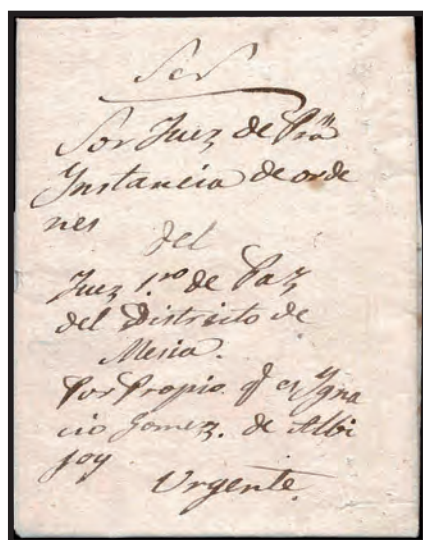 Sor Juez de Pra
Instancia de orde
nes
del
Juez 1.ro de Paz
del Distrito de
Mesia.
Por Propio q.e es Ygna
cio Gomez. de Albi
joy
Urgente.